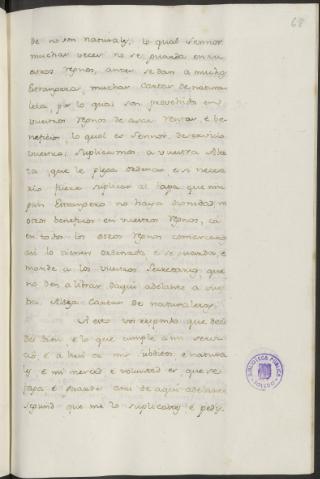 68
de no son naturales, lo qual Sennor
muchas veces no se guarda en vu
estros regnos, antes se dan a muchos
Estrangeros, muchas Cartas de natura
leza, por lo qual son provehidos en
vuestros regnos de asaz rentas, e be
neficios, lo qual es Sennor, deservicio
vuestro: Suplicamos a vuestra Alte
za, que le plega ordenar e si neces
rio fuere suplicar al Papa que nin
gun Estrangero no haya dignidad, ni
otros beneficios en vuestros regnos, ca
en todos los otros regnos comarcanos
asi lo tienen ordenado e se guarda, e
mande a los vuestros Secretarios, que
no den a librar, daqui adelante a vues
tra Alteza Cartas de naturalezas.
A esto vos respondo que decis
bien e lo que cumple a mi servi
cio, e a bien de mis subditos e natura
les e mi merced e voluntad es que se
faga e guarde asi de aqui adelante
segund que me lo suplicades e pedis.
BIBLIOTECA PÚBLICA
TOLEDO